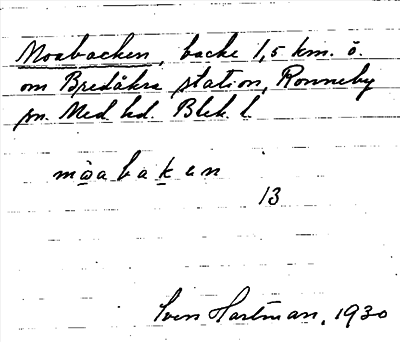 Moabacken, backe 1,5 km. ö.
om Bredåkra station, Ronneby
sn. Med. hd. Blek. l.
mo̲abak̲an
13
Sven Hartman, 1930